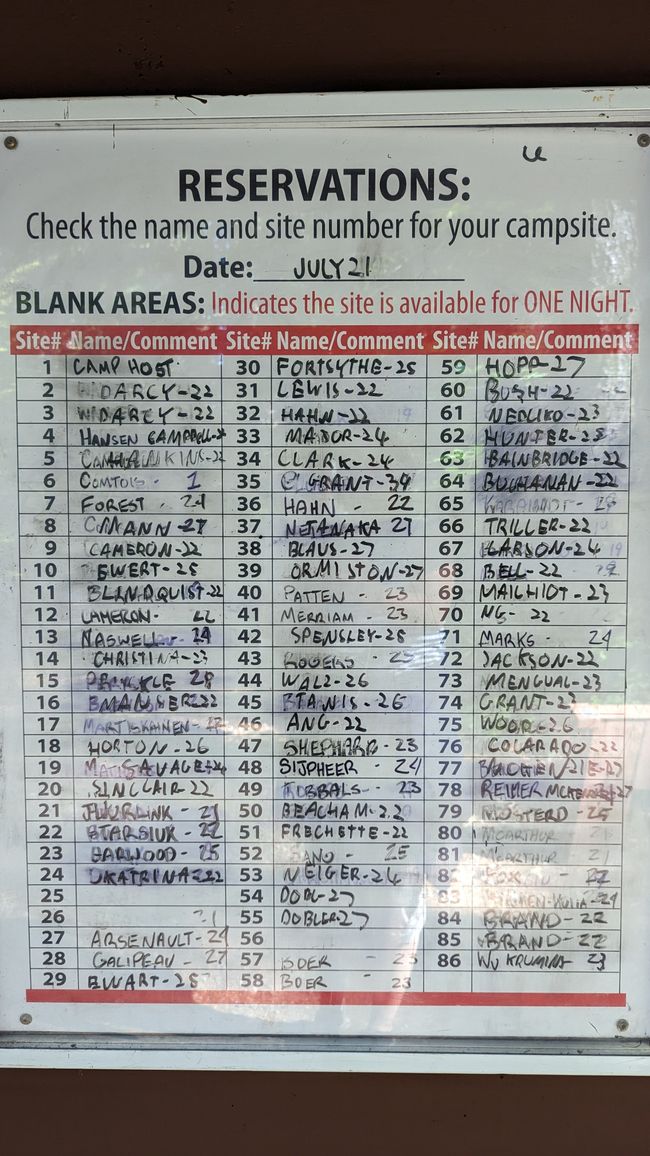 RESERVATIONS:
Check the name and site number for your campsite.
Date: JULY 21
BLANK AREAS: Indicates the site is available for ONE NIGHT.
Site# Name/Comment Site# Name/Comment Site# Name/Comment
1 CAMP HOST 30 FORTSYTHE-25 59 HOPP-27
2 DARCY-22 31 LEWIS-22 60 BUSH-22
3 DARCY-22 32 HAHN-22 61 NEDLIKO-23
4 HANSEN CAMPBELL- 33 MADOR-24 62 HUNTER-25
5 HAWKINS-22 34 CLARK-24 63 BAINBRIDGE-22
6 COMTOIS - 1 35 GRANT-34 64 BUCHANAN-22
7 FOREST - 24 36 HAHN - 22 65
8 MANN-27 37 NETANAKA 27 66 TRILLER-22
9 CAMERON-22 38 BLAUS-27 67 LARSON-24
10 EWERT-25 39 ORMISTON-27 68 BELL-22
11 BLINDQUIST-22 40 PATTEN - 23 69 MAILHIOT-23
12 CAMERON- 22 41 MERRIAM - 23 70 NG- 22
13 MASWELL- 24 42 SPENSLEY-25 71 MARKS - 24
14 CHRISTINA-23 43 ROGERS - 72 JACKSON-22
15 28 44 WALZ-26 73 MENGUAL-23
16 22 45 STANIS-26 74 GRANT-23
17 MARTISKAINEN- 46 ANG-22 75 WOOD-26
18 HORTON-26 47 SHEPHARD-23 76 COLARADO-22
19 SAVAGE-24 48 SIJPHEER - 24 77
20 SINCLAIR-22 49 ROBBALS- 23 78 REIMER MCKENZIE-27
21 50 BEACHAM-22 79 MOSTERD-25
22 STARSIUK-22 51 FRECHETTE-22 80 MCARTHUR
23 HARWOOD-25 52 SANO - 25 81 MCARTHUR 21
24 UKATRINA-22 53 NEIGER-24 82 22
25 54 DOBL-27 83
26 21 55 DOBLER-27 84 BRAND-22
27 ARSENAULT-24 56 85 BRAND-22
28 GALIPEAU-27 57 BOER - 23 86 WU KRUMINS 23
29 EWART-25 58 BOER - 23